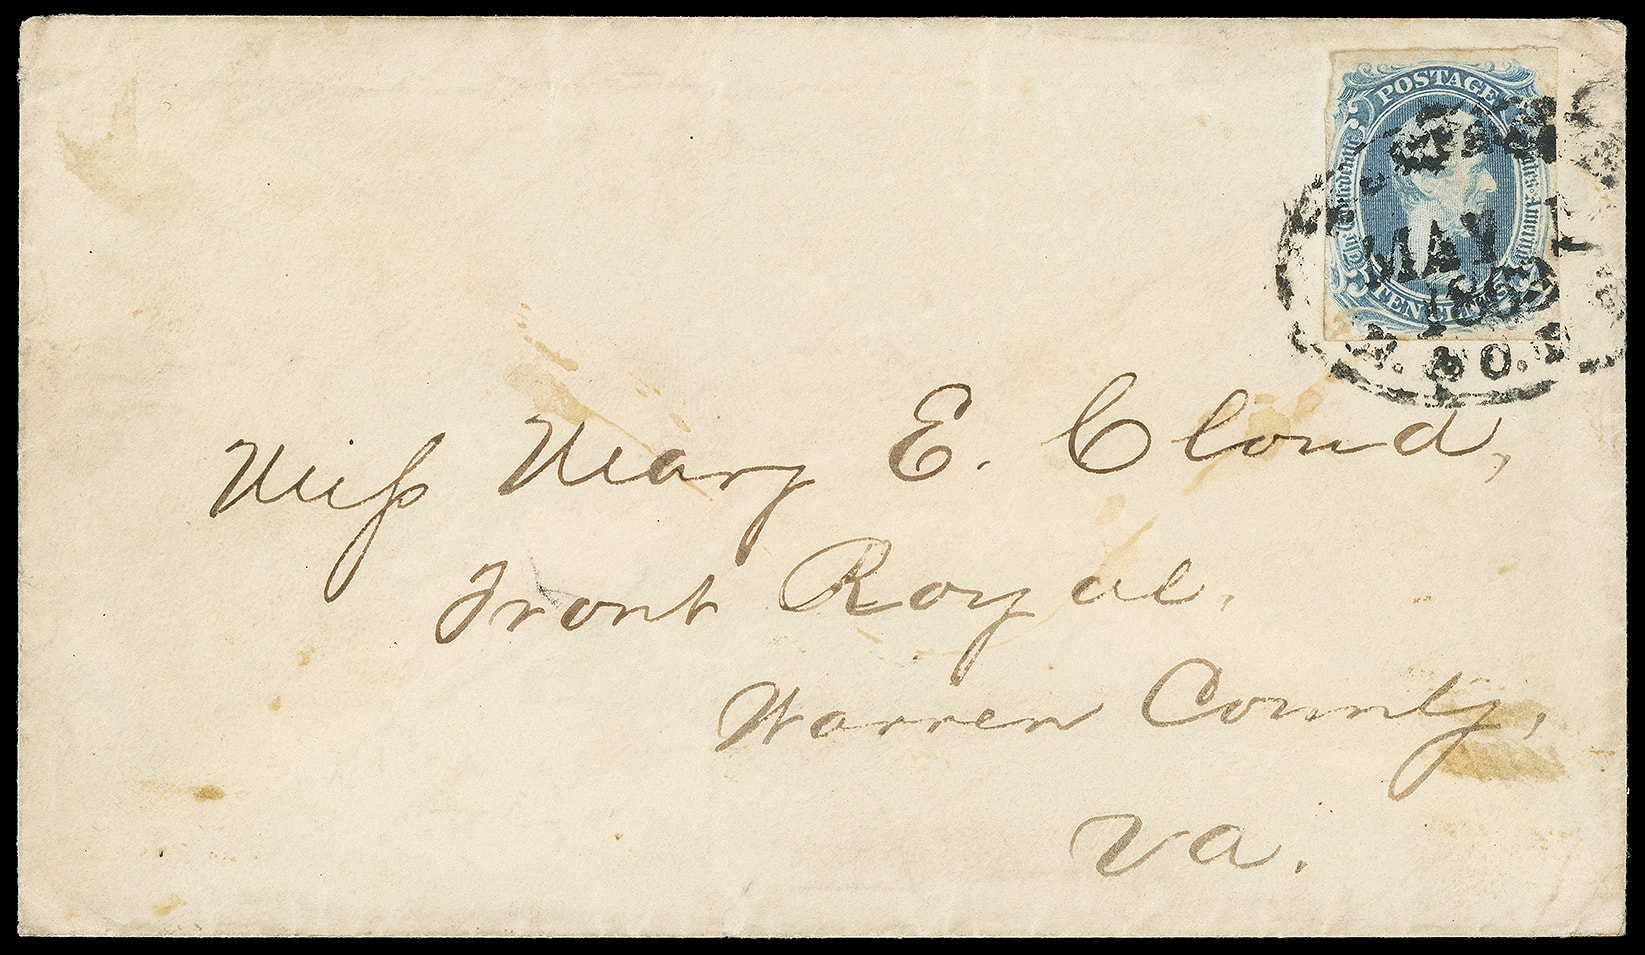 POSTAGE
The Confederate States of America
TEN CENTS
MAY
1863
P. O.
Miss Mary E. Cloud,
Front Royal.
Warren County,
Va.